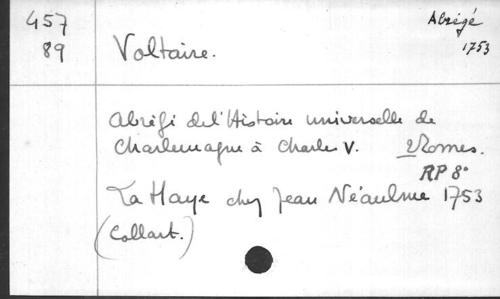 457
89
Abrégé
1753
Voltaire.
Abrégé de l'Histoire universelle de
Charlemagne à Charles V. 2 Tomes.
RP 8°
La Haye chez Jean Néaulme 1753
(Collart.)